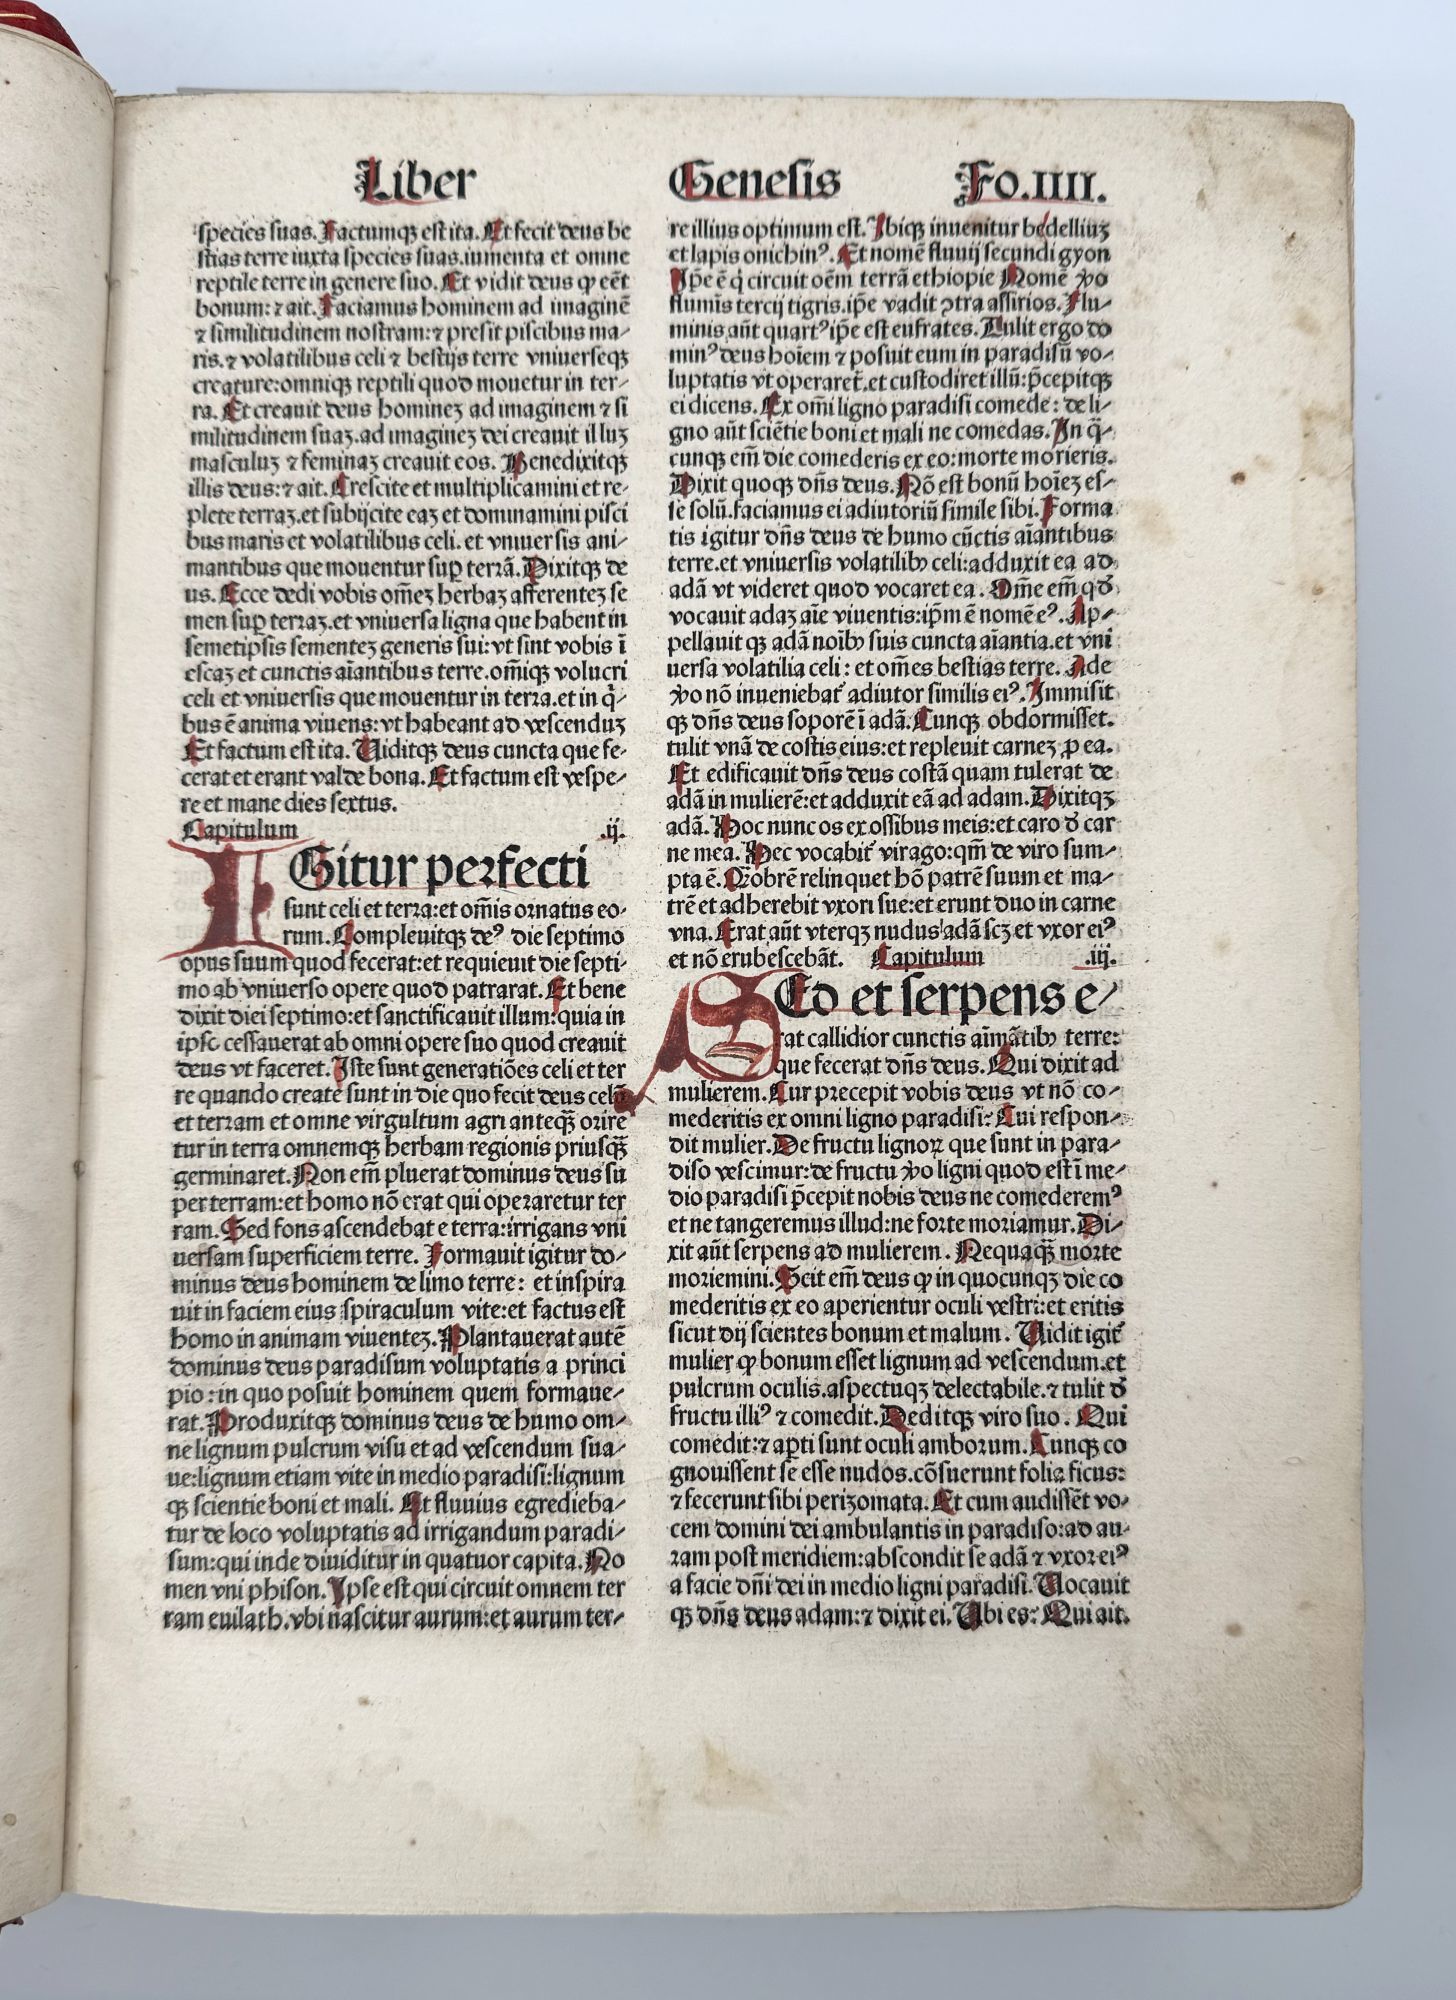 Liber Genesis Fo.IIII.
species suas. Factumqʒ est ita. Et fecit deus be
stias terre iuxta species suas.iumenta et omne
reptile terre in genere suo. Et vidit deus ꝙ eēt
bonum: ⁊ ait. Faciamus hominem ad imaginē
⁊ similitudinem nostram: ⁊ presit piscibus ma⸗
ris. ⁊ volatilibus celi ⁊ bestijs terre vniuerseqʒ
creature:omniqʒ reptili quod mouetur in ter⸗
ra. Et creauit deus homineʒ ad imaginem ⁊ si
militudinem suaʒ.ad imagineʒ dei creauit illuʒ
masculuʒ ⁊ feminaʒ creauit eos. Benedixitqʒ
illis deus: ⁊ ait. Crescite et multiplicamini et re⸗
plete terraʒ.et subijcite eaʒ et dominamini pisci
bus maris et volatilibus celi. et vniuersis ani⸗
mantibus que mouentur suꝑ terrā. Dixitqʒ de
us. Ecce dedi vobis om̄eʒ herbaʒ afferenteʒ se
men suꝑ terraʒ.et vniuersa ligna que habent in
semetipsis sementeʒ generis sui: vt sint vobis ī
escaʒ et cunctis aīantibus terre.om̄iqʒ volucri
celi et vniuersis que mouentur in terra.et in q̄⸗
bus ē anima viuens: vt habeant ad vescenduʒ
Et factum est ita. Uiditqʒ deus cuncta que fe⸗
cerat et erant valde bona. Et factum est vespe⸗
re et mane dies sextus.
Capitulum .ij.
IGitur perfecti
sunt celi et terra: et om̄is ornatus eo⸗
rum. Compleuitqʒ deꝰ die septimo
opus suum quod fecerat: et requieuit die septi⸗
mo ab vniuerso opere quod patrarat. Et bene
dixit diei septimo: et sanctificauit illum: quia in
ipso cessauerat ab omni opere suo quod creauit
deus vt faceret. Iste sunt generatiōes celi et ter
re quando create sunt in die quo fecit deus celū
et terram et omne virgultum agri anteqꝫ orire
tur in terra omnemqʒ herbam regionis priusqꝫ
germinaret. Non em̄ pluerat dominus deus su
per terram: et homo nō erat qui operaretur ter
ram. Sed fons ascendebat e terra: irrigans vni
uersam superficiem terre. Formauit igitur do⸗
minus deus hominem de limo terre: et inspira
uit in faciem eius spiraculum vite: et factus est
homo in animam viuenteʒ. Plantauerat autē
dominus deus paradisum voluptatis a princi
pio: in quo posuit hominem quem formaue⸗
rat. Produxitqʒ dominus deus de humo om⸗
ne lignum pulcrum visu et ad vescendum sua⸗
ue: lignum etiam vite in medio paradisi: lignum
qʒ scientie boni et mali. Et fluuius egredieba⸗
tur de loco voluptatis ad irrigandum paradi⸗
sum: qui inde diuiditur in quatuor capita. No
men vni phison. Ipse est qui circuit omnem ter
ram euilath. vbi nascitur aurum: et aurum ter⸗
re illius optimum est. Ibiqʒ inuenitur bedelliuʒ
et lapis onichinꝰ. Et nomē fluuij secundi gyon
Ip̄e ē q̄ circuit oēm terrā ethiopie Nomē ꝟo
fluminis tercij tigris. ip̄e vadit ꝯtra assirios. Flu⸗
minis aūt quartꝰ ip̄e est eufrates. Tulit ergo do
minꝰ deus hoīem ⁊ posuit eum in paradisū vo⸗
luptatis vt operaret̄.et custodiret illū: p̄cepitqʒ
ei dicens. Ex om̄i ligno paradisi comede: de li⸗
gno aūt sciētie boni et mali ne comedas. In q̄⸗
cunqʒ em̄ die comederis ex eo: morte morieris.
Dixit quoqʒ dn̄s deus. Nō est bonū hoīeʒ es⸗
se solū.faciamus ei adiutoriū simile sibi. Forma
tis igitur dn̄s deus de humo cūctis aīantibus
terre.et vniuersis volatilibꝫ celi: adduxit ea ad
adā vt videret quod vocaret ea. Om̄e em̄ qd̄
vocauit adaʒ aīe viuentis: ip̄m ē nomē eꝰ. Ap⸗
pellauit qʒ adā noībꝫ suis cuncta aīantia.et vni
uersa volatilia celi: et om̄es bestias terre. Ade
ꝟo nō inueniebat̄ adiutor similis eiꝰ. Immisit
qʒ dn̄s deus soporē ī adā. Cunqʒ obdormisset.
tulit vnā de costis eius: et repleuit carneʒ ꝓ ea.
Et edificauit dn̄s deus costā quam tulerat de
adā in mulierē: et adduxit eā ad adam. Dixitqʒ
adā. Hoc nunc os ex ossibus meis: et caro d̄ car
ne mea. Hec vocabit̄ virago: qm̄ de viro sum⸗
pta ē. Qobrē relinquet hō patrē suum et ma⸗
trē et adherebit vxori sue: et erunt duo in carne
vna. Erat aūt vterqʒ nudus adā scʒ et vxor eiꝰ
et nō erubescebāt. Capitulum .iij.
SEd et serpens e⸗
rat callidior cunctis aīmātibꝫ terre:
que fecerat dn̄s deus. Qui dixit ad
mulierem. Cur precepit vobis deus vt nō co⸗
mederitis ex omni ligno paradisi: Cui respon⸗
dit mulier. De fructu lignoꝝ que sunt in para⸗
diso vescimur: de fructu ꝟo ligni quod est ī me⸗
dio paradisi p̄cepit nobis deus ne comederemꝰ
et ne tangeremus illud: ne forte moriamur. Di⸗
xit aūt serpens ad mulierem. Nequaqꝫ morte
moriemini. Scit em̄ deus ꝙ in quocunqʒ die co
mederitis ex eo aperientur oculi vestri: et eritis
sicut dij scientes bonum et malum. Uidit igit̄
mulier ꝙ bonum esset lignum ad vescendum.et
pulcrum oculis.aspectuqʒ delectabile. ⁊ tulit d̄
fructu illiꝰ ⁊ comedit. Deditqʒ viro suo. Qui
comedit: ⁊ aꝑti sunt oculi amborum. Cunqʒ co
gnouissent se esse nudos.cōsuerunt folia ficus:
⁊ fecerunt sibi perizomata. Et cum audissēt vo⸗
cem domini dei ambulantis in paradiso: ad au⸗
ram post meridiem: abscondit se adā ⁊ vxor eiꝰ
a facie dn̄i dei in medio ligni paradisi. Uocauit
qʒ dn̄s deus adam: ⁊ dixit ei. Ubi es: Qui ait.